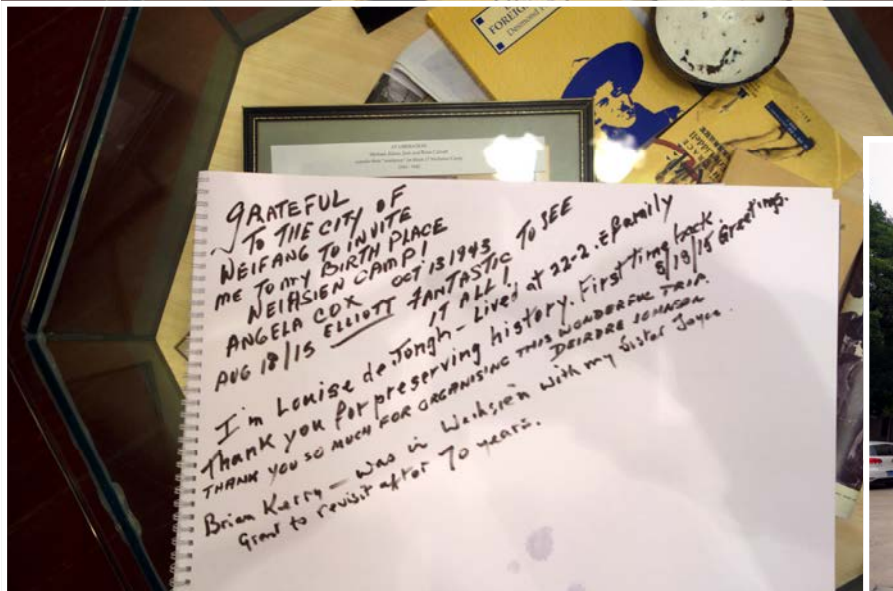 FOREIG
Desmond
RACE
GRATEFUL
TO THE CITY OF
WEIFANG TO INVITE
ME TO MY BIRTH PLACE
WEIHSIEN CAMP!
ANGELA COX OCT 13 1943
AUG 18/15 ELLIOTT FANTASTIC TO SEE
IT ALL!
I'm Louise de Jongh - Lived at 22-2. family
Thank you for preserving history. First time back.
8/18/15 Greetings.
THANK YOU SO MUCH FOR ORGANISING THIS WONDERFUL TRIP.
DEIRDRE JOHNSON
Brian Kerry - was in Weihsien with my sister Joyce.
Great to revisit after 70 years.